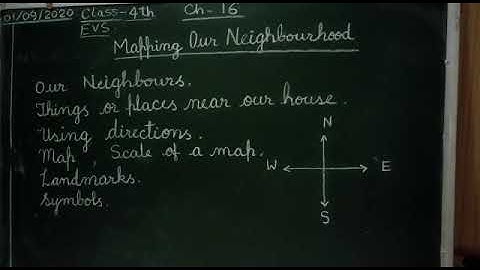 01/09/2020 Class-4th Ch-16
EVS
Mapping Our Neighbourhood
Our Neighbours.
Things or places near our house.
Using directions.
Map, Scale of a map.
Landmarks.
Symbols.
N
W E
S